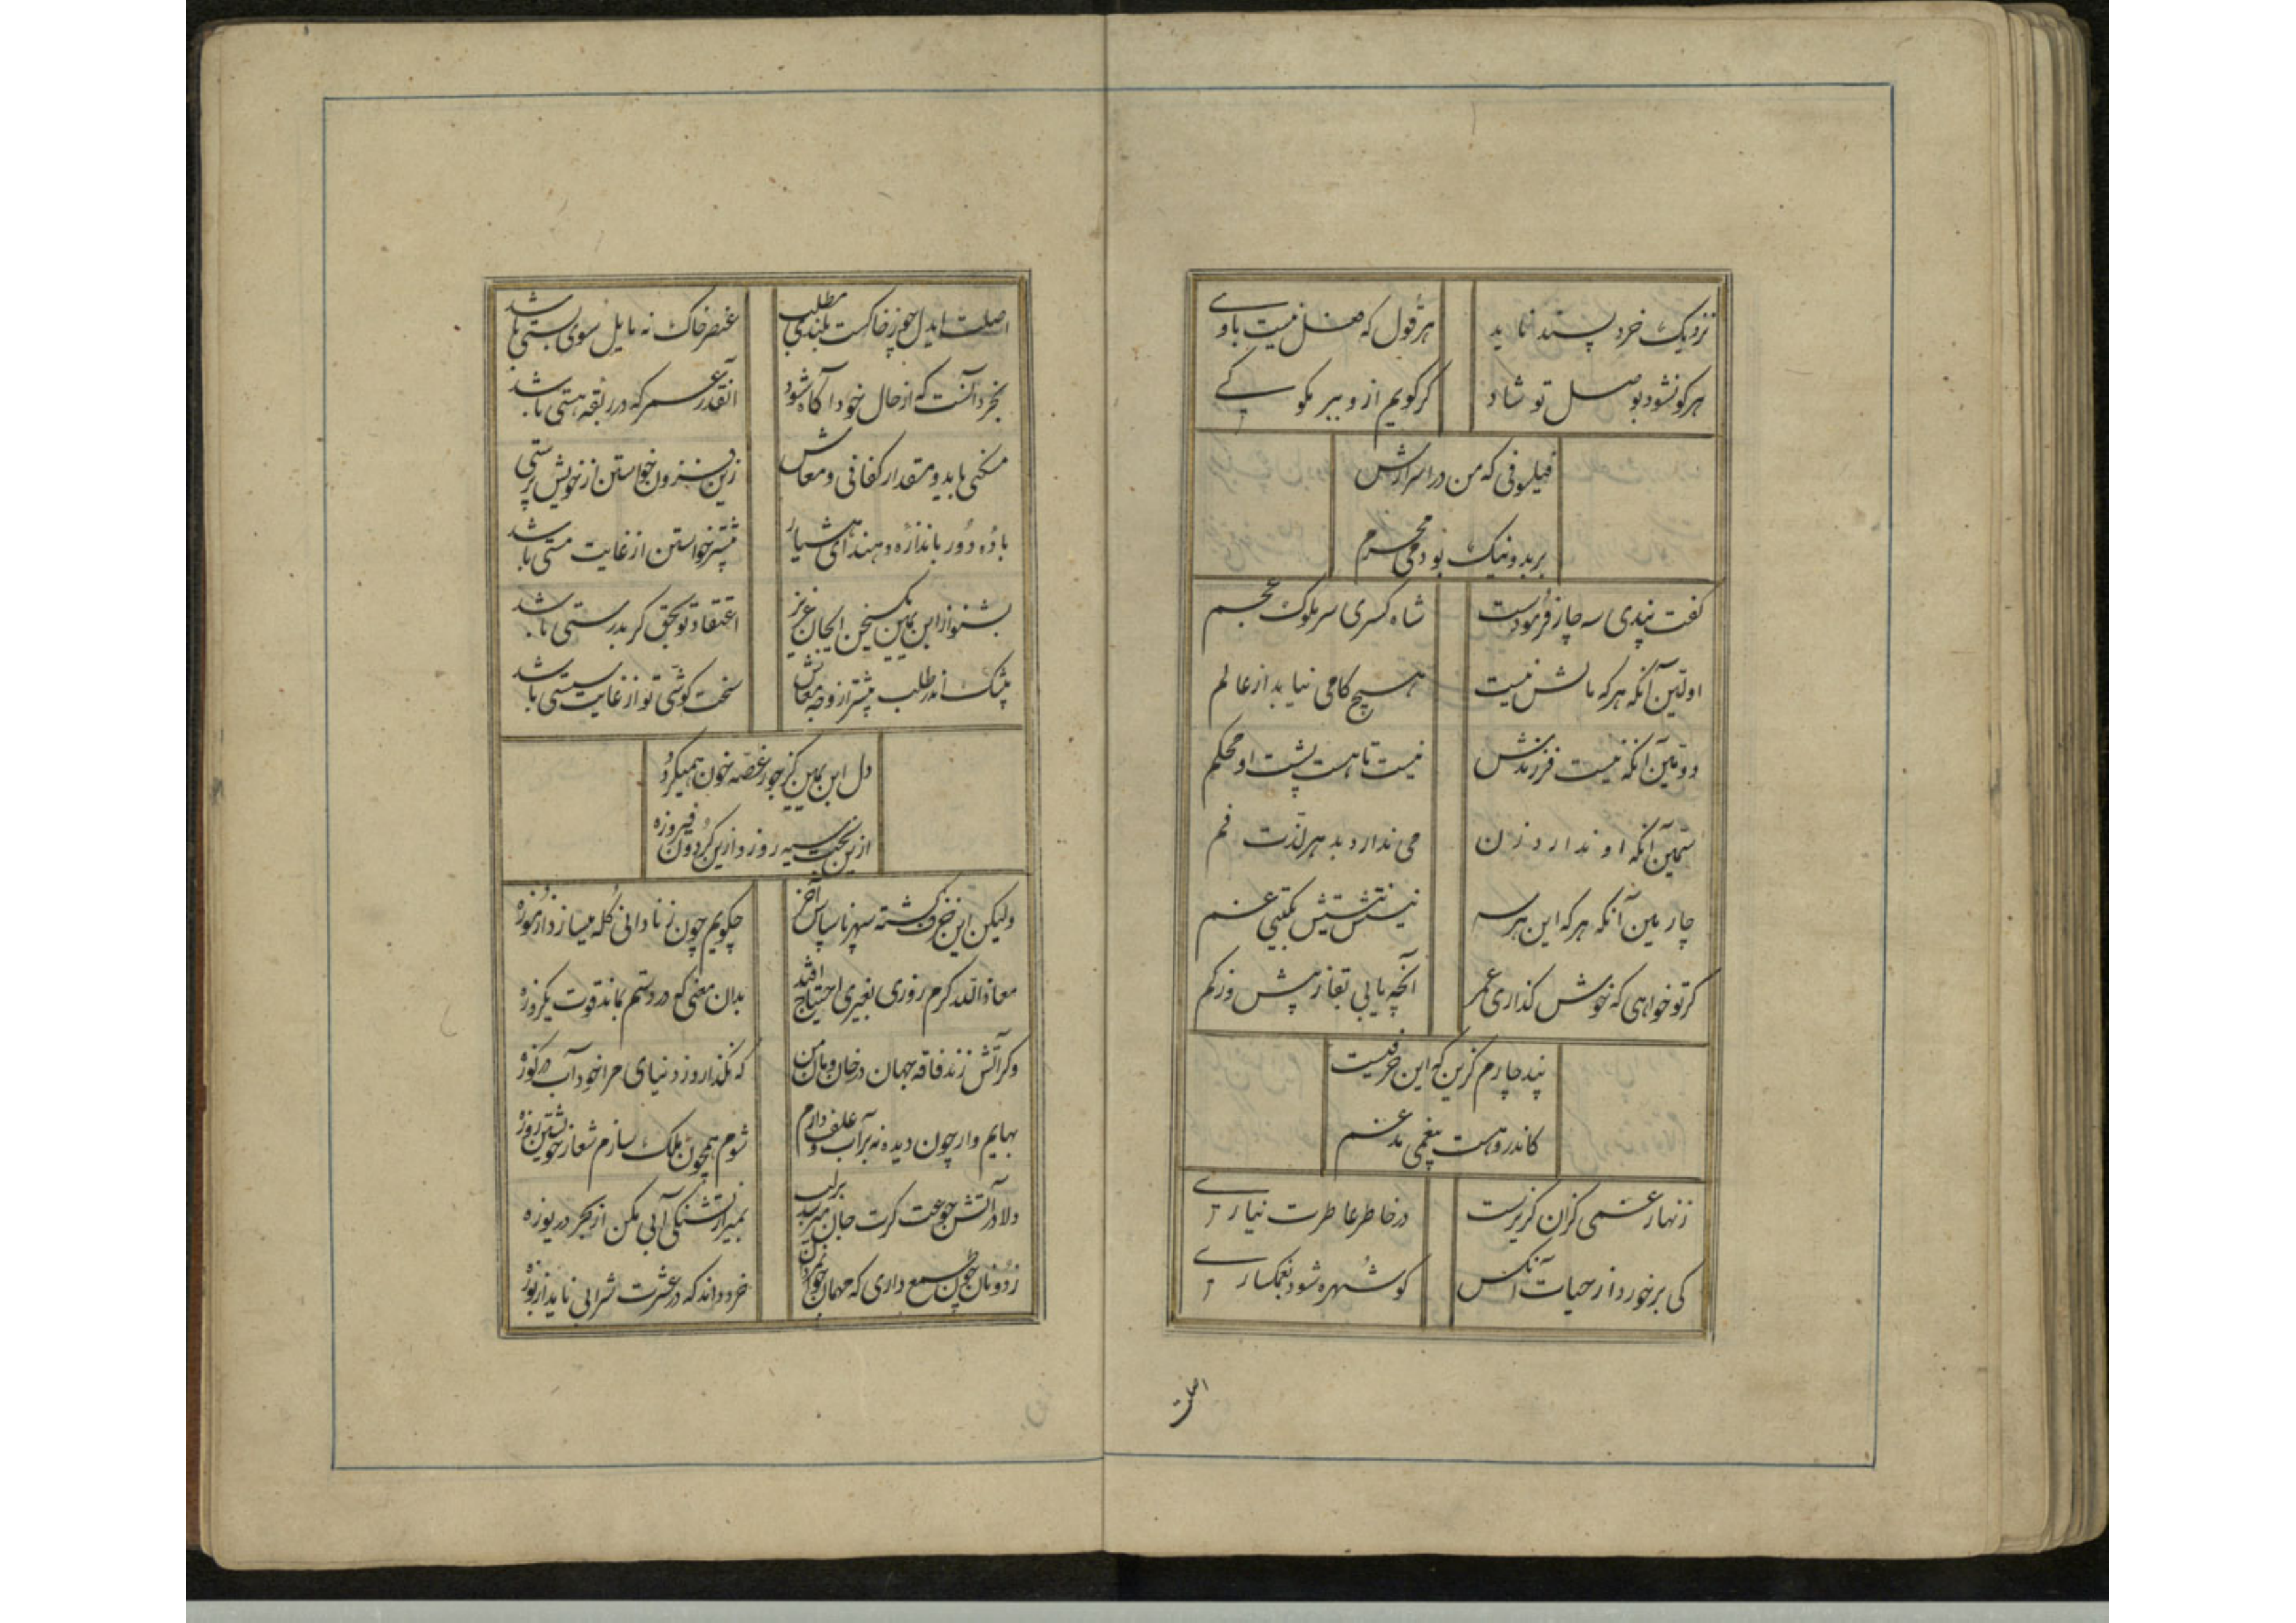 نزدیک خرد پسند ناید هر قول که فضل نیست باوی
هرکو نشود بوصل تو شاد گر گویم ازو ببر مکو کی
فیلسوفی که من در اسرارش
بر بد و نیک بودمی محرم
گفت پندی سه چار فرمودست شاه کسری سر ملوک عجم
اولین آنکه هر که مالش نیست هیچ کامی نیابد از عالم
دومین آنکه نیست فرزندش نیست تا هست پشت او محکم
سیمین آنکه او ندارد زن می ندارد بدهر لذت فم
چارمین آنکه هر که این هر سه نیستش نیستش بگیتی غم
گر تو خواهی که خوش گذاری عمر آنچه یابی بقا ز پیش و ز کم
پند چارم گزین که این حرفیست
کاندرو هست بیغمی مدغم
زنهار غمی کزان گزیرست در خاطر عاطرت نیاری
کی برخورد از حیات آنکس کو شهره شود بغمگساری
اصلت
اصلت ایدل چو ز خاکست بلندی مطلب عنصر خاک نه مایل سوی پستی باشد
بخرد آنست که از حال خود آگاه شود آنقدر عمر که در ربقه هستی باشد
مسکنی باید و مقدار کفافی و معاش زین فزون خواستن از خویش پرستی باشد
باده دور باندازه دهند ای هشیار بیشتر خواستن از غایت مستی باشد
بشنو از ابن یمین یک سخن ایجان عزیز اعتقاد تو بحق گر بدرستی باشد
بیشک اندر طلب بیشتر از وجه معاش سخت کوشی تو از غایت سستی باشد
دل ابن یمین گر چو ز غصه خون همیگردد
ازین بخت سیه روز و ازین گردون فیروزه
ولیکن این خرف گشته سپهر ناسپاس آخر چگویم چون ز نادانی گله میسازد از موزه
معاذالله گرم روزی بغیری احتیاج افتد بدان معنی که در دستم نماند قوت یکروزه
وگر آتش زند فاقه جهان در خان و مان من که نگذارد ز دنیای مرا خود آب در کوزه
بهایم وار چون دیده نه بر آب و علف دارم شوم همچون ملک سازم شعار خویشتن روزه
دلا در آتش جوعت گرت جان میرسد بر لب بمیر از تشنگی آبی مکن از بحر دریوزه
ز دونان چون طمع داری که مهمان جوانمردان خرد داند که در عشرت شرابی ناید از بوزه